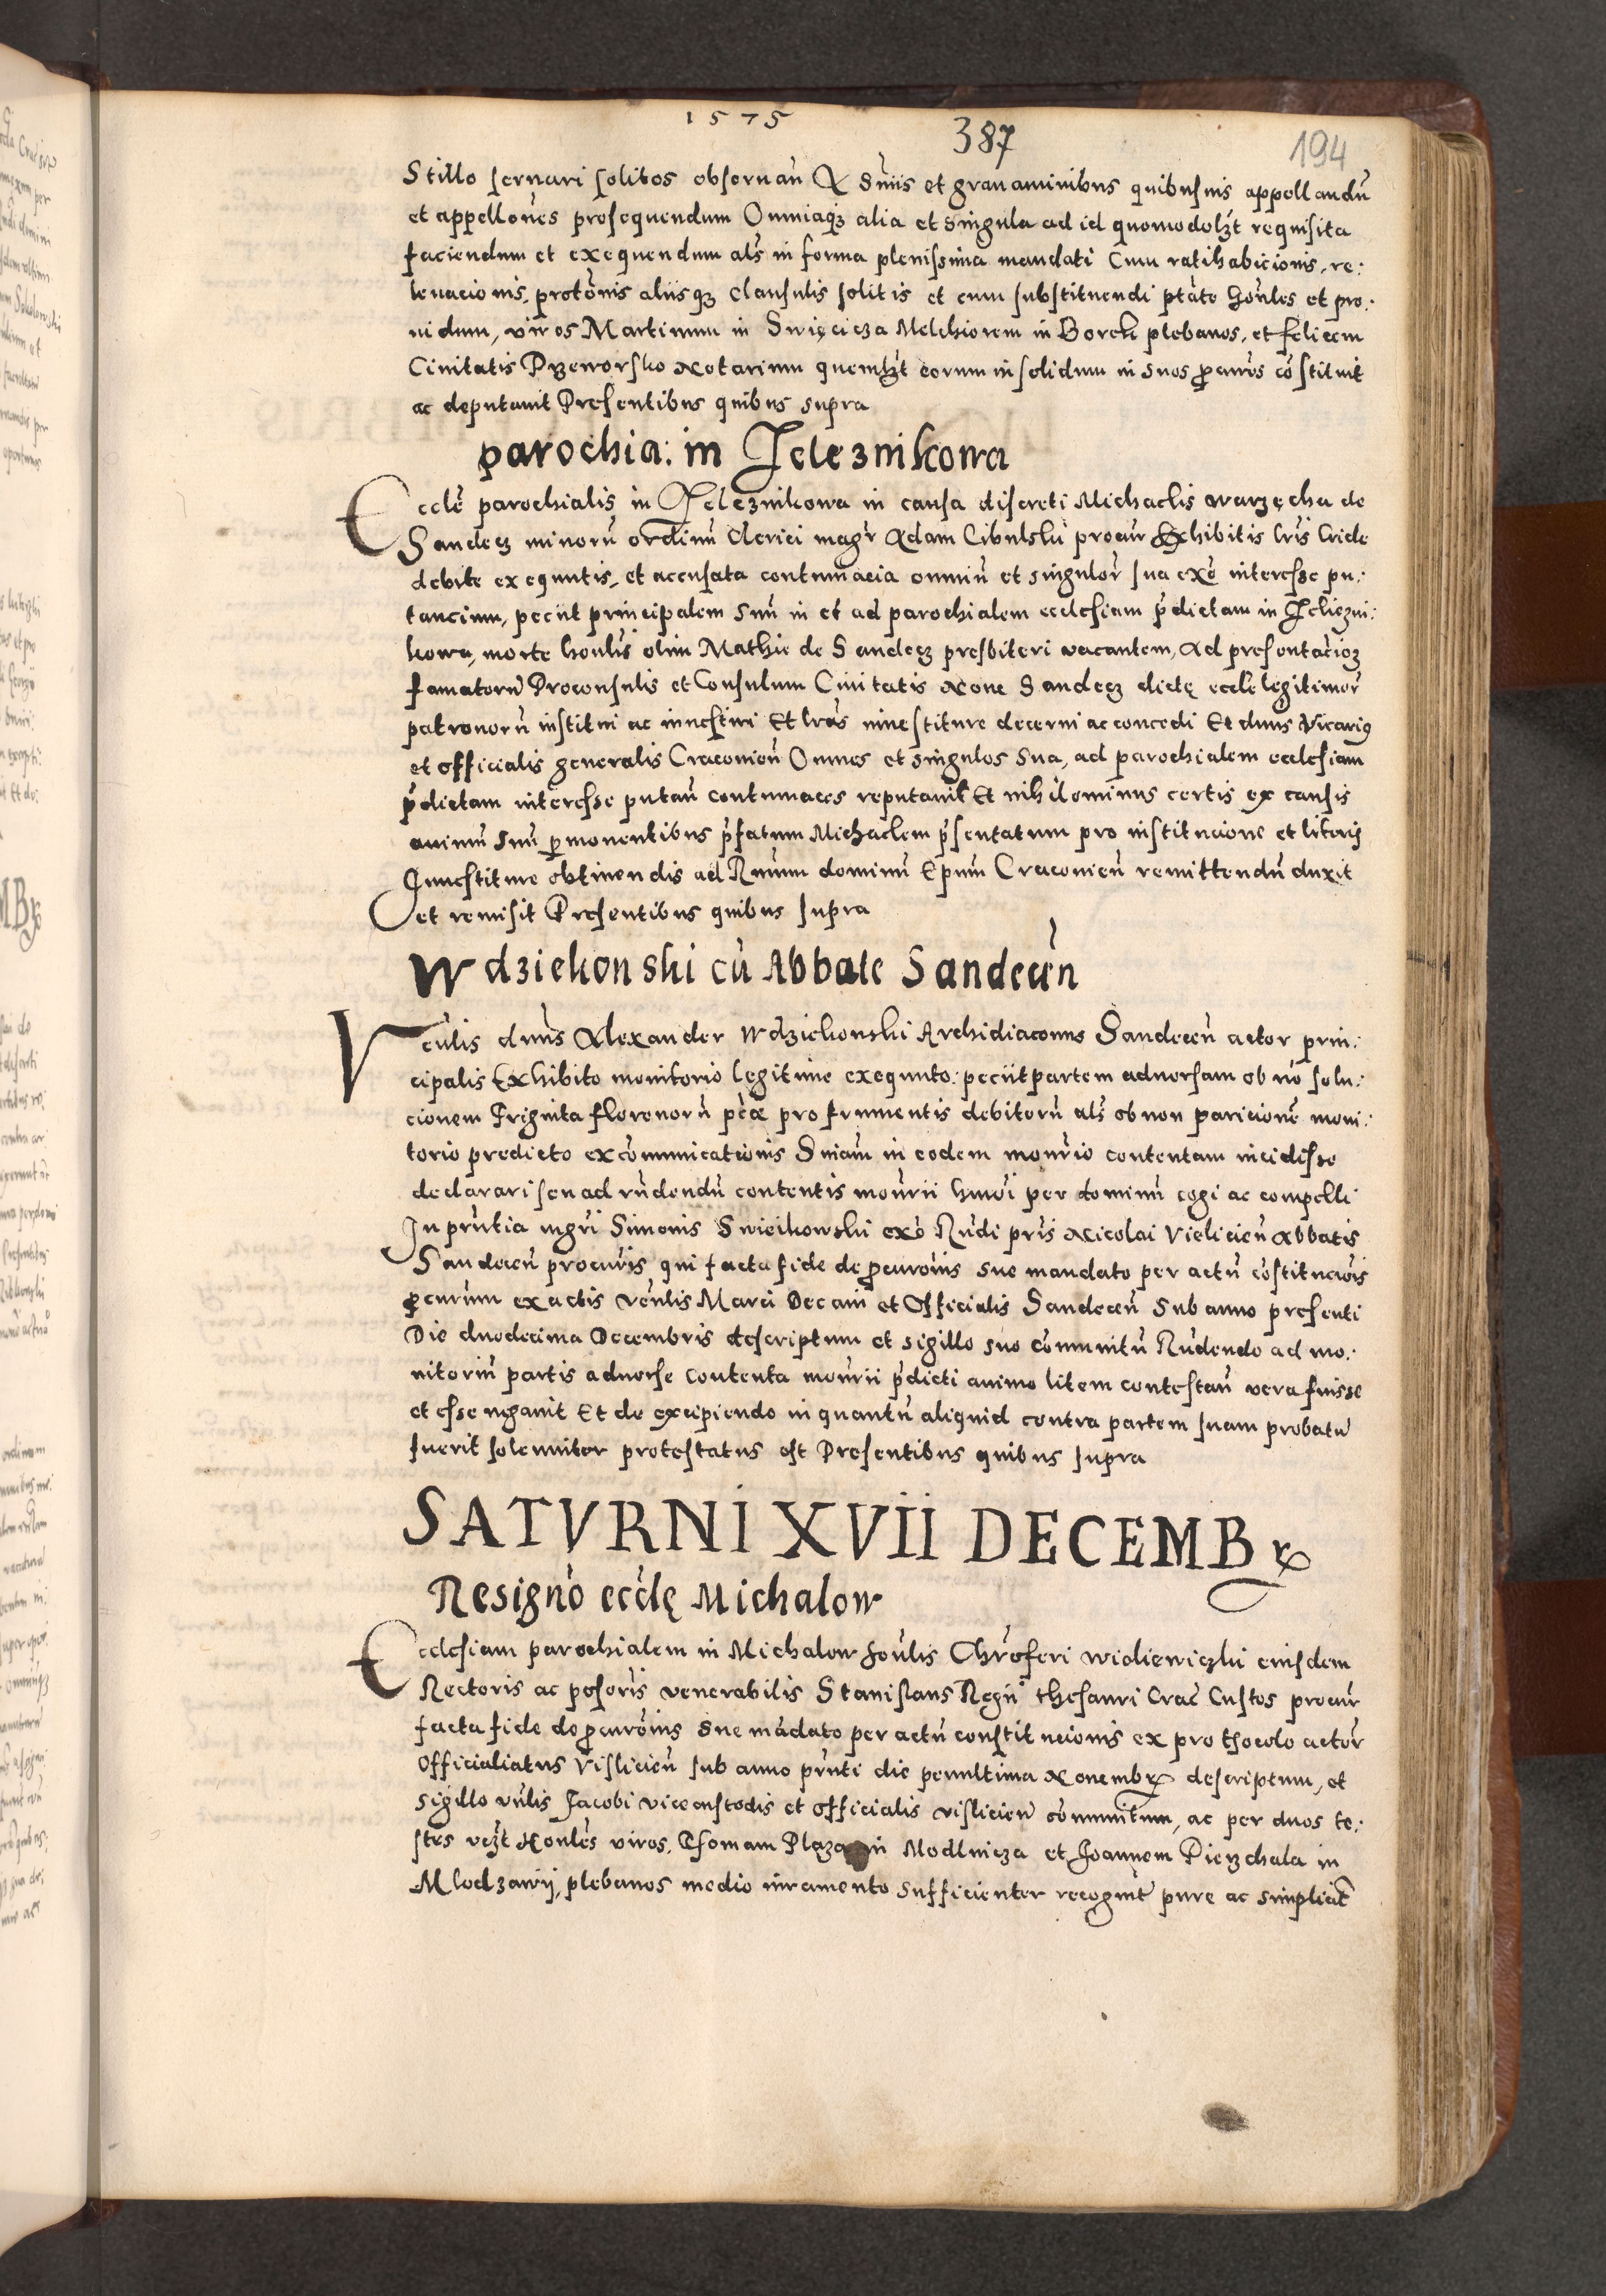 1575
387
194
Stillo seruari solitos obseruan̄ A snīis et grauaminibus quibusuis appellandū
et appellōnes prosequendum Omniaqꝫ alia et singula ad id quomodolꝫt requisita
faciendum et exequendum als in forma plenissima mandati Cum ratihabicionis, re:
leuacionis, protōnis aliisqꝫ clausulis solitis et cum substituendi ptāte Hōnles et pro:
uidum, viros Martinum in Swięcicza Melchiorem in Borek plebanos, et felicem
Ciuitatis Przeworsko Notarium quemlꝫt eorum insolidum in suos ꝓcuros cōstituit
ac deputauit Presentibus quibus supra
parochia: in Jeleznikowa
Eccłe parochialis in Jeleznikowa in causa discreti Michaelis warzęcha de
Sandecz minorū ordinū Clerici magr Adam Cibulski procur Exhibitis lris Cride
debite exequutis, et accusata contumacia omniū et singulor sua exō interesse pu:
tancium, peciit principalem suū in et ad parochialem ecclesiam p̄dictam in Jeliezni:
kowa, morte honlis olim Mathie de Sandecz presbiteri vacantem, Ad presentacioꝫ
famatorū Proconsulis et Consulum Ciuitatis Noue Sandecz dictę eccłe legitimor
patronorū institui ac inuestiri Et lras inuestiture decerni ac concedi Et dnus Vicarius
et officialis generalis Cracouien̄ Omnes et singulos sua, ad parochialem ecclesiam
p̄dictam interesse putan̄ contumaces reputauit Et nihilominus certis ex causis
animū suū ꝑmouentibus p̄fatum Michaelem p̄sentatum pro institucione et literis
Inuestiture obtinendis ad Rmum dominū Epum Cracouien̄ remittendū duxit
et remisit Presentibus quibus supra
Wdziekonski cū Abbate Sandecn̄
Venlis dnus Alexander Wdziekonski Archidiaconus Sandecen̄ actor prin:
cipalis Exhibito monitorio legitime exequuto: peciit partem aduersam ob nō solu:
cionem Triginta florenorū pctæ pro frumentis debitorū als ob non paricionē moni:
torio predicto excōmunicationis Sniam in eodem monrio contentam incidisse
declarari seu ad rn̄dendū contentis monrii hmoi per dominū cogi ac compelli
In pn̄tia mgri Simonis Swieikowski exō Rndi pris Nicolai Vieliciēn Abbatis
Sandecen̄ procuris qui facta fide de ꝓcurōnis sue mandato per actū cōstitucōis
ꝓcurum ex actis venlis Marci Decani et Officialis Sandecen̄ Sub anno presenti
Die duodecima Decembris descriptum et sigillo suo cōmunitū Rn̄dendo ad mo:
nitoriū partis aduerse contenta monrii p̄dicti animo litem contestan̄ vera fuisse
et esse negauit Et de excipiendo in quantū aliquid contra partem suam probatū
fuerit solenniter protestatus est Presentibus quibus supra
SATVRNI XVII DECEMBꝝ
Resignō eccłę Michalow
Ecclesiam parochialem in Michalow honlis Christoferi wieliewiczki eiusdem
Rectoris ac posoris venerabilis Stanislaus Regn̄ thesauri Crac Custos procur
facta fide de ꝓcurōnis sue mādato per actū constitucionis ex prothocolo actor
Officialiatus Vislicien̄ sub anno pn̄ti die penultima Nouembꝝ descriptum, et
sigillo vnlis Jacobi vicecustodis et officialis vislicien̄ cōmunitum, ac per duos te:
stes vcꝫt Honles viros, Thomam Plaza in Modlnicza et Joannem Pierzchala in
Mlodzawij, plebanos medio iuramento sufficienter recognit pure ac simplicit